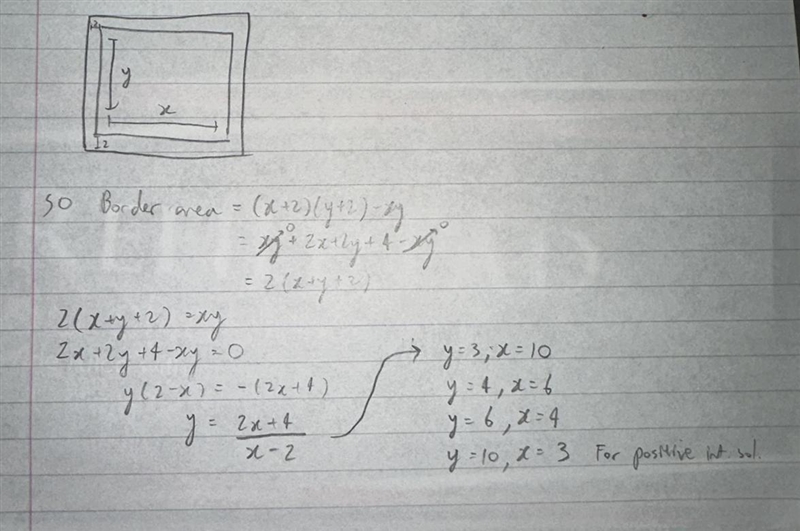 2
y
x
2
SO Border area = (x+2)(y+2)-xy
= xy⁰ + 2x+2y+4 - xy⁰
= 2(x+y+2)
2(x+y+2) = xy
2x+2y+4-xy=0
y(2-x) = -(2x+4)
y = 2x+4
x-2
y=3, x=10
y=4, x=6
y=6, x=4
y=10, x=3 For positive int. sol.